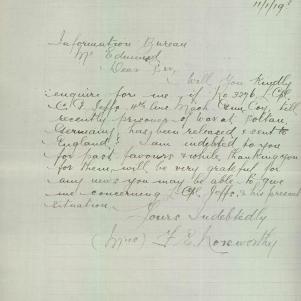 11/1/19
Information Bureau
Mr Edmunds
Dear Sir,
Will you kindly
enquire for me if No 3276 L/Cpl
C. F. Jeffs, 4th Aus. Mach. Gun Coy, till
recently prisoner of war at Soltau,
Germany, has been released & sent to
England, I am indebted to you
for past favours & while thanking you
for them, will be very grateful for
any news you may be able to give
me concerning L/Cpl Jeffs, & his present
situation.
Yours Indebtedly
(Mrs) F. E. Noseworthy